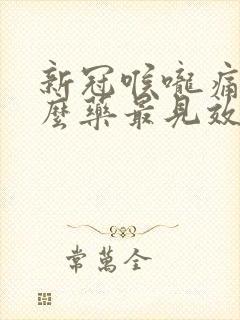 新冠喉嚨痛
麼藥最見效
常萬全